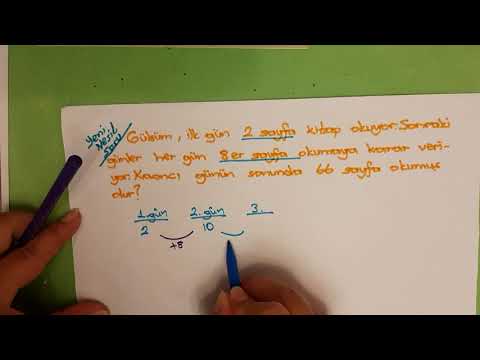 Yeni
Nesil
Soru
Gülsüm, ilk gün 2 sayfa kitap okuyor. Sonraki
günler her gün 8'er sayfa okumaya karar veri-
yor. Kaçıncı günün sonunda 66 sayfa okumuş
olur?
1. gün 2. gün 3.
2 +8 10